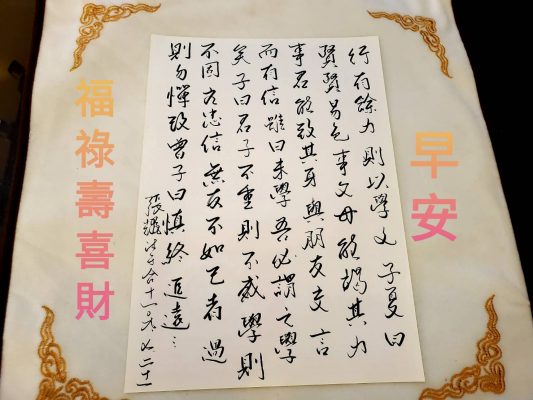 早安
行有餘力則以學文子夏曰
賢賢易色事父母能竭其力
事君能致其身與朋友交言
而有信雖曰未學吾必謂之學
矣子曰君子不重則不威學則
不固主忠信無友不如己者過
則勿憚改曾子曰慎終追遠⋯
張耀合十一〇九、七、二十一
福祿壽喜財